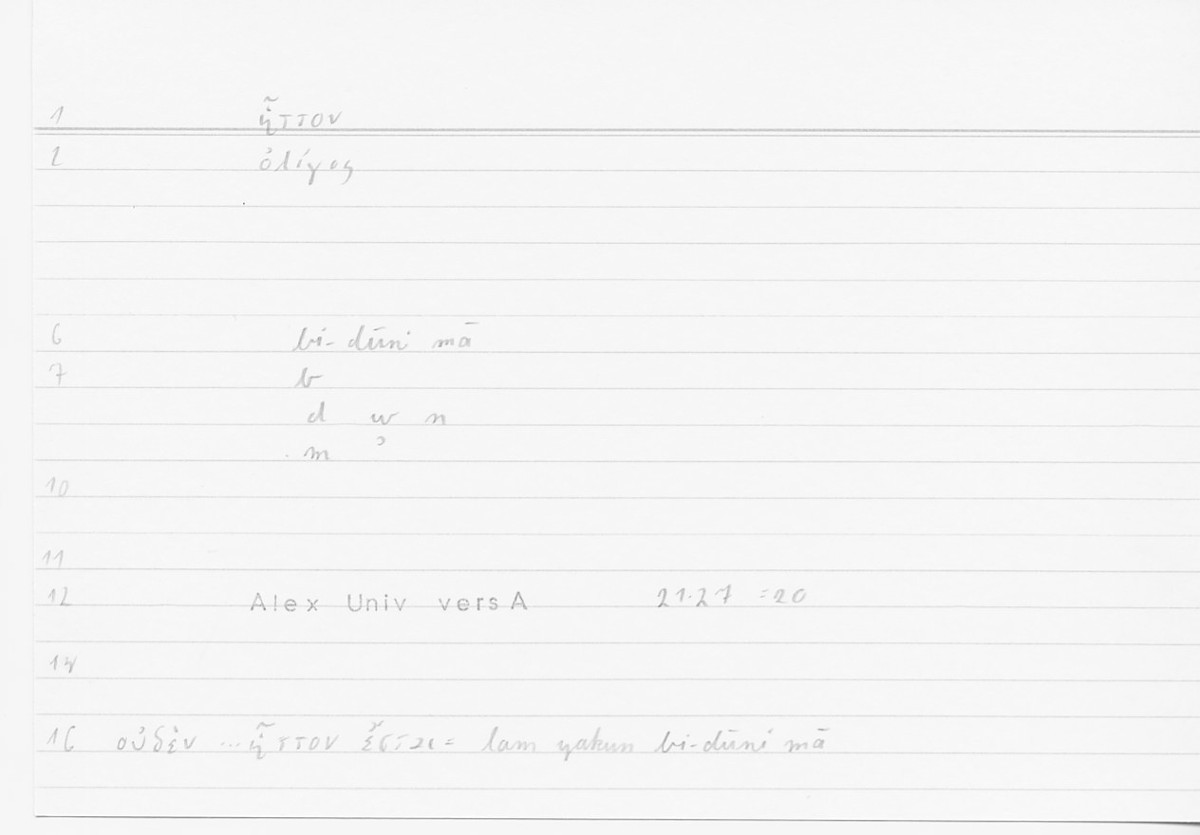 1 ἧττον
2 ὀλίγος
6 bi-dūni mā
7 b
d w n
m ʾ
10
11
12 Alex Univ vers A 21.27 =20
14
16 οὐδὲν ... ἧττον ἔσται = lam yakun bi-dūni mā